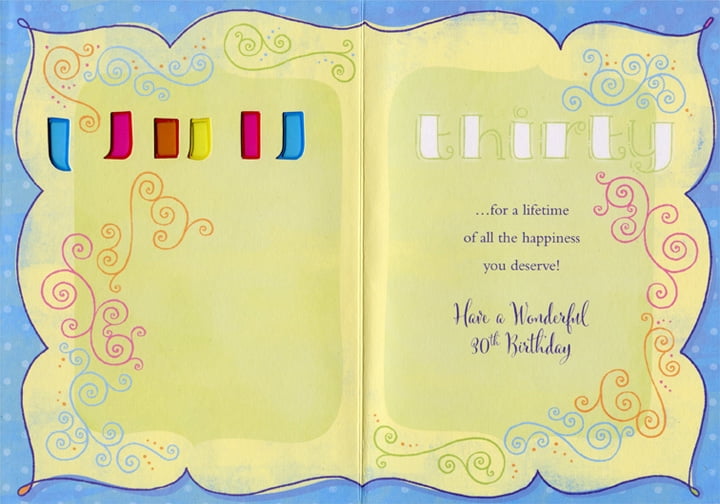 thirty
...for a lifetime
of all the happiness
you deserve!
Have a Wonderful
30th Birthday